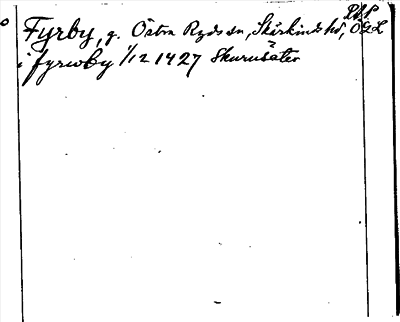 RAP
Fyrby, g. Östra Ryds sn, Skärkinds hd, ÖGL
i fyrwby 1/12 1427 Skurusäter